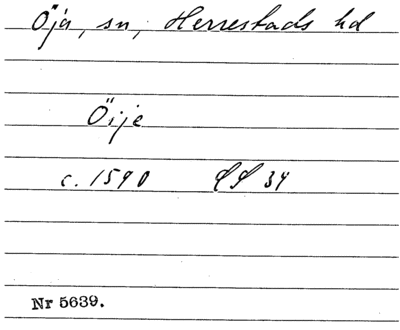 Öja, sn, Herrestads hd
Öije
c. 1590 34
Nr 5639.